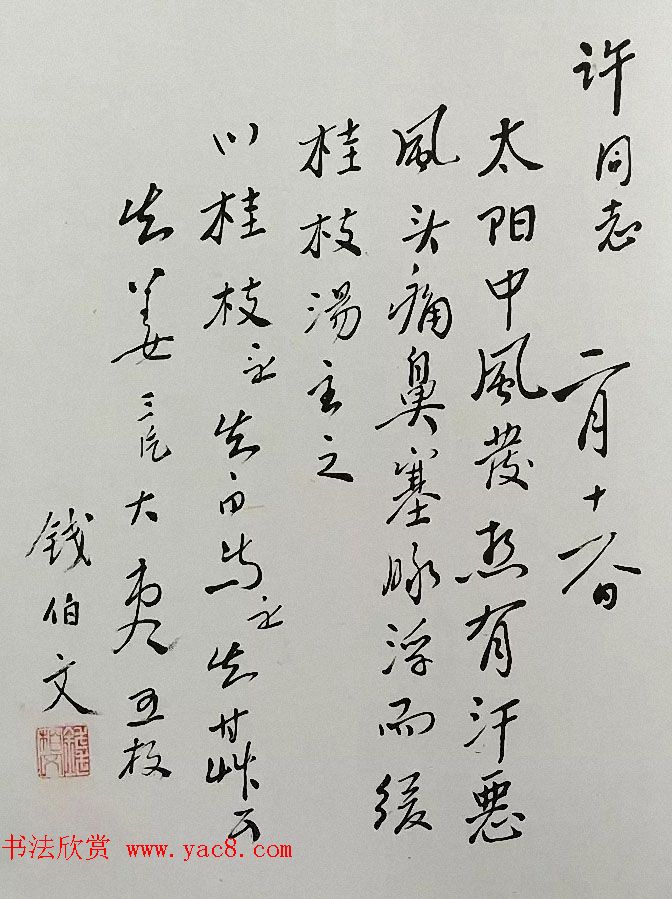 许同志 二月十日
太阳中風發热有汗悪
風头痛鼻塞脉浮而缓
桂枝湯主之
川桂枝 生白芍 生甘草
生姜三片大枣五枚
钱伯文
书法欣赏 www.yac8.com